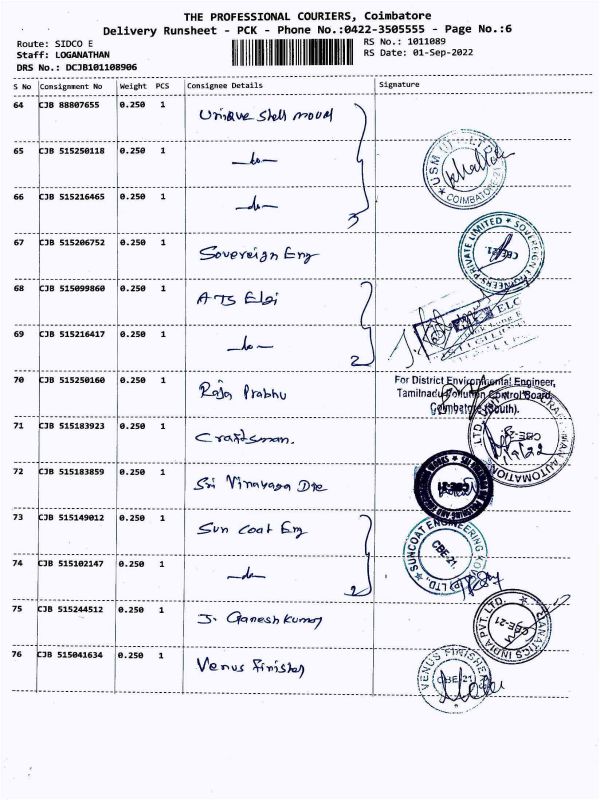 THE PROFESSIONAL COURIERS, Coimbatore
Delivery Runsheet - PCK - Phone No.:0422-3505555 - Page No.:6
Route: SIDCO E
RS No.: 1011089
Staff: LOGANATHAN
RS Date: 01-Sep-2022
DRS No.: DCJB101108906
S No Consignment No Weight PCS Consignee Details Signature
64 CJB 88807655 0.250 1 Unique Shell mould
65 CJB 515250118 0.250 1 —do—
USM (I) LTD
COIMBATORE-21
66 CJB 515216465 0.250 1 —do—
3
67 CJB 515206752 0.250 1 Sovereign Eng
SOVEREIGN ENGINEERS PRIVATE LIMITED
CBE-21.
68 CJB 515099860 0.250 1 ATS Elgi
ELGI
69 CJB 515216417 0.250 1 —do—
2
70 CJB 515250160 0.250 1 Raja Prabhu
For District Environmental Engineer,
Tamilnadu Pollution Control Board,
Coimbatore (South).
71 CJB 515183923 0.250 1 Craftsman.
CRAFTSMAN AUTOMATION LTD. UNIT
CBE-21
72 CJB 515183859 0.250 1 Sri Vinayaga Die
73 CJB 515149012 0.250 1 Sun Coat Eng
SUNCOAT ENGINEERING (P) LTD,
CBE-21.
74 CJB 515102147 0.250 1 —do—
2
75 CJB 515244512 0.250 1 J. Ganesh Kumar
INDIA PVT. LTD.
CBE-21
76 CJB 515041634 0.250 1 Venus Finisher
VENUS FINISHER
CBE-21